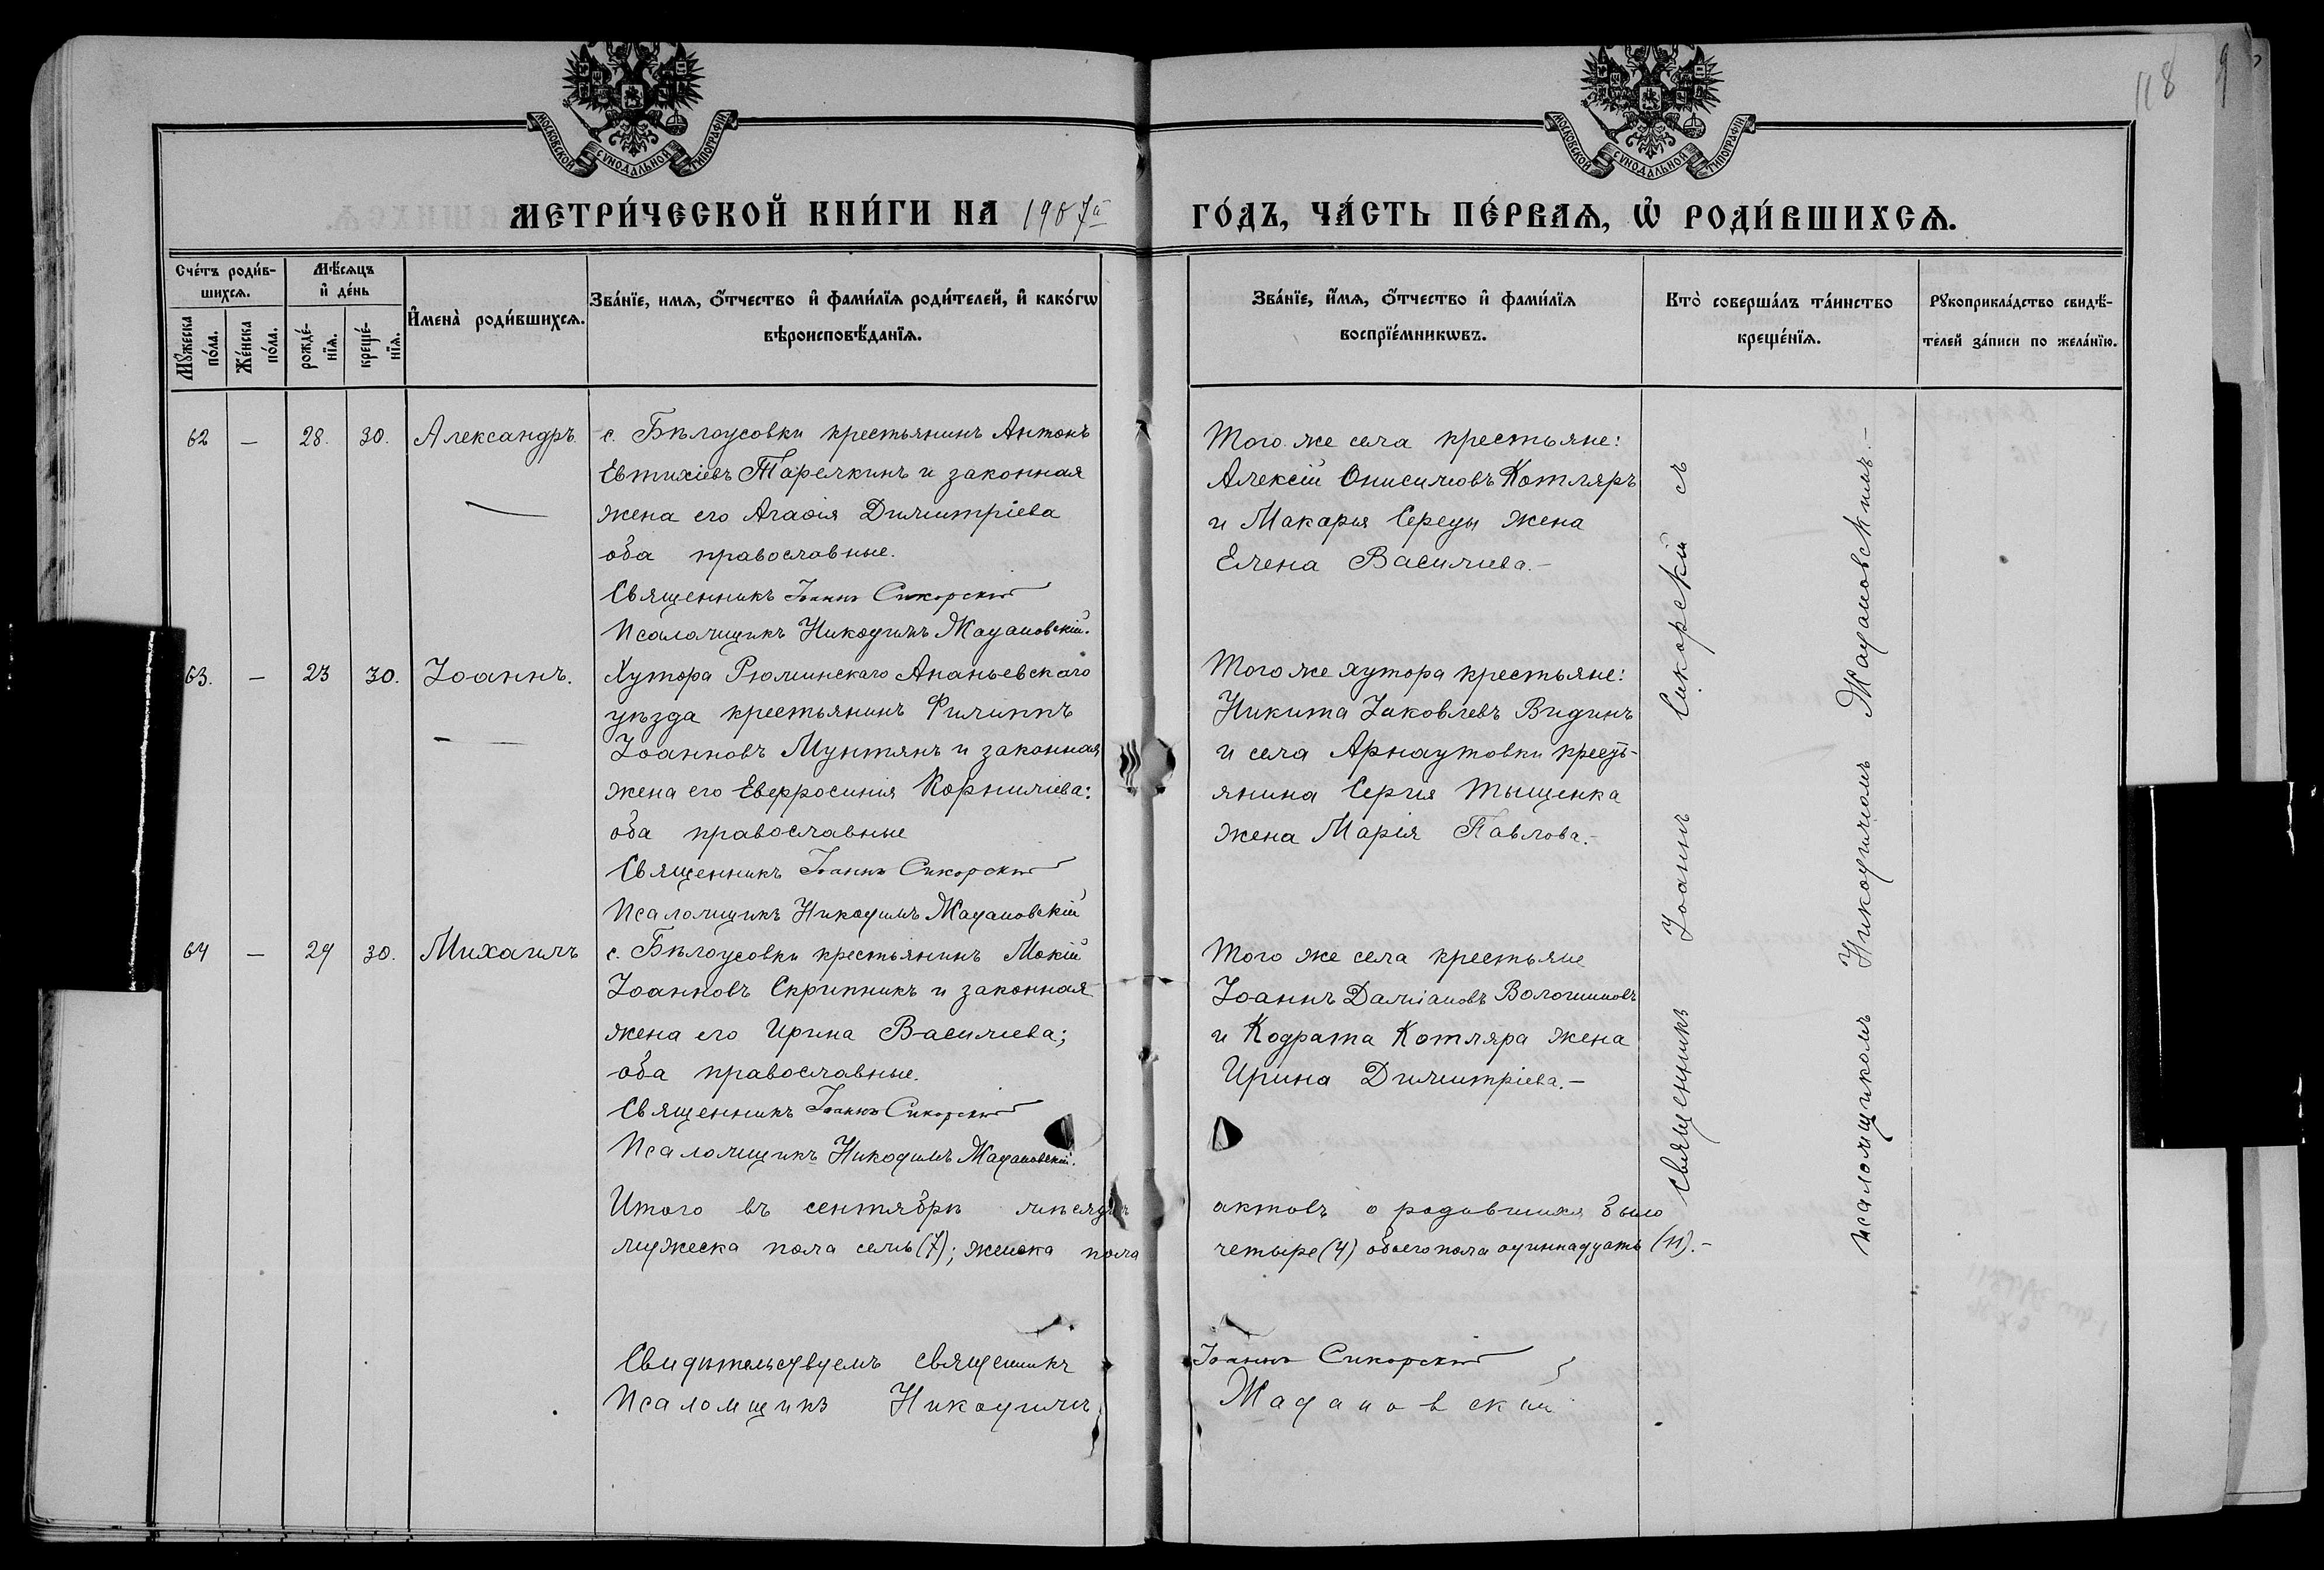 118
МОСКОВСКОЙ СѴНОДАЛЬНОЙ ТИПОГРАФІИ
МОСКОВСКОЙ СѴНОДАЛЬНОЙ ТИПОГРАФІИ
МЕТРИ́ЧЕСКОЙ КНИ́ГИ НА 1907й ГО́ДЪ, ЧА́СТЬ ПЕ́РВАѦ, Ѡ҆ РОДИ́ВШИХСѦ.
Сче́тъ роди́в-
шихсѧ.
Мꙋ́жеска по́ла.
Же́нска по́ла.
Мѣ́сѧцъ
и҆ де́нь
рожде́-нїѧ.
креще́-нїѧ.
И҆мена̀ роди́вшихсѧ.
Зва́нїе, имѧ, ѻ҆́тчество и҆ фами́лїѧ роди́телей, и҆ како́гѡ
вѣроисповѣ́данїѧ.
Зва́нїе, и҆́мѧ, ѻ҆́тчество и҆ фами́лїѧ
воспрїе́мникѡвъ.
Кто̀ соверша́лъ та́инство
креще́нїѧ.
Рꙋкоприкла́дство свидѣ́-
телей за́писи по жела́нїю.
62 — 28. 30. Александръ.
с. Бѣлоусовки крестьянинъ Антонъ
Евтихіевъ Тарелкинъ и законная
жена его Агафія Димитріева
оба православные.
Священникъ Іоаннъ Сикорскій
Псаломщикъ Никодимъ Жадановскій.
Того же села крестьяне:
Алексій Онисимовъ Котляръ
и Макарія Середы жена
Елена Василиева.—
63. — 23 30. Іоаннъ.
Хутора Рюминскаго Ананьевскаго
уѣзда крестьянинъ Филиппъ
Іоанновъ Мунтянъ и законная
жена его Евфросинія Корниліева:
оба православные
Священникъ Іоаннъ Сикорскій
Псаломщикъ Никодимъ Жадановскій
Того же хутора крестьяне:
Никита Іаковлевъ Видинъ
и села Арнаутовки крест-
янина Сергія Тыщенка
жена Марія Павлова.—
64 — 29 30. Михаилъ
с. Бѣлоусовки крестьянинъ Мокій
Іоанновъ Скрипникъ и законная
жена его Ирина Василиева;
оба православные.
Священникъ Іоаннъ Сикорскій
Псаломщикъ Никодимъ Жадановскій.
Того же села крестьяне
Іоаннъ Даміановъ Волошиновъ
и Кодрата Котляра жена
Ирина Димитріева.—
Священникъ Іоаннъ Сикорскій съ
псаломщикомъ Никодимомъ Жадановскимъ.—
Итого въ сентябрѣ мѣсяцѣ актовъ о родившихся было
мужеска пола семь (7); женска пола четыре (4) обоего пола одиннадцать (11).—
Свидѣтельствуемъ священникъ Іоаннъ Сикорскій
Псаломщикъ Никодимъ Жадановскій